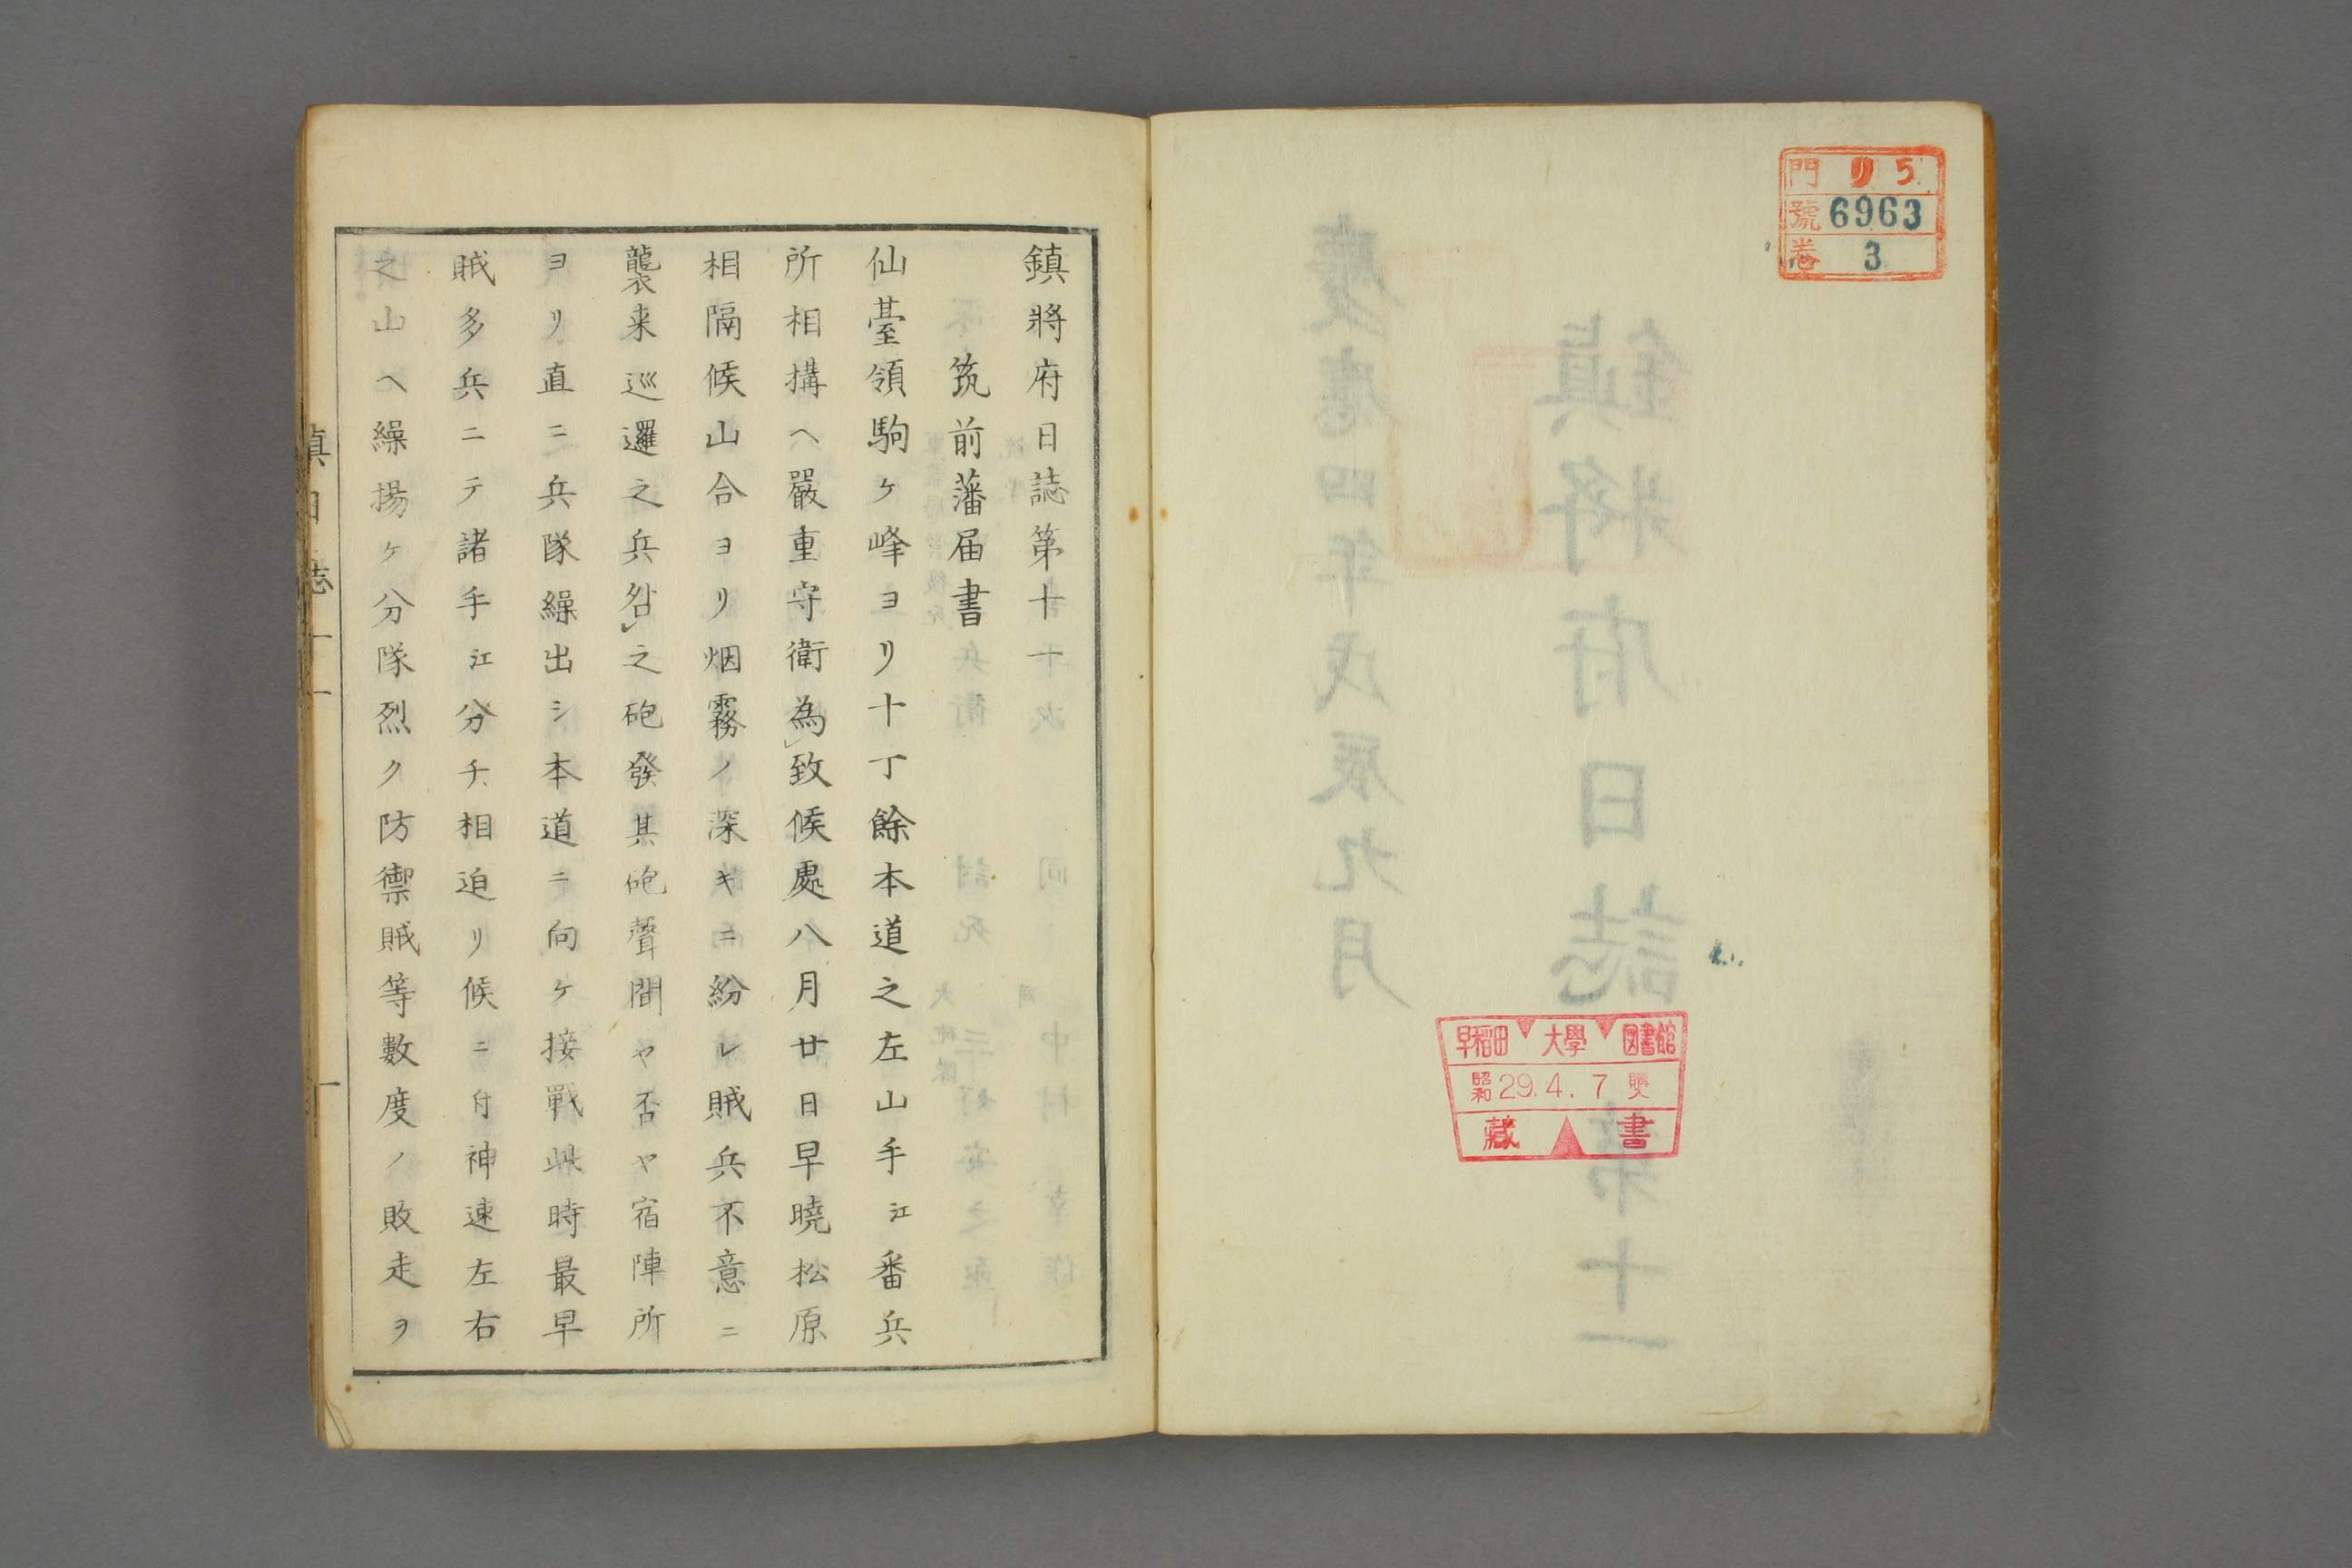 門 リ 5
號 6963
卷 3
鎮將府日誌第十一
慶應四年戊辰九月
早稻田大學圖書館
昭和29.4.7
藏書
鎮將府日誌第十一
筑前藩届書
仙臺領駒ケ峰ヨリ十丁餘本道之左山手江番兵
所相搆ヘ嚴重守衛為致候處八月廿日早曉松原
相隔候山合ヨリ烟霧ノ深キニ紛レ賊兵不意ニ
襲来巡邏之兵咎之砲發其砲聲間ヤ否ヤ宿陣所
ヨリ直ニ兵隊繰出シ本道ニ向ケ接戰此時最早
賊多兵ニテ諸手江分チ相迫リ候ニ付神速左右
之山ヘ繰揚ケ分隊烈ク防禦賊等數度ノ敗走ヲ
鎮日誌十一